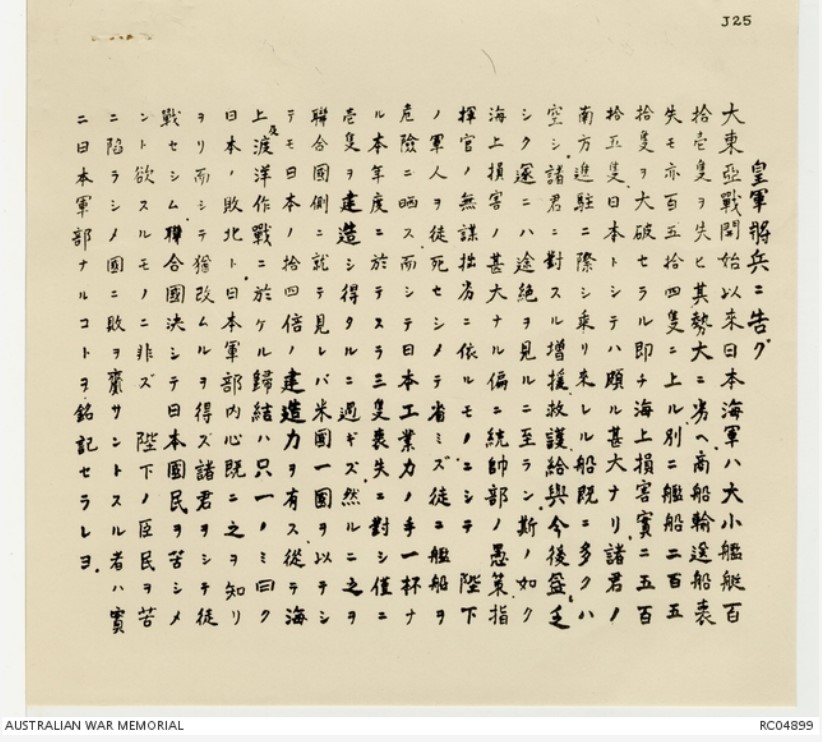 J25
皇軍將兵ニ告グ
大東亞戰開始以來日本海軍ハ大小艦艇百
拾壱隻ヲ失ヒ其勢大ニ劣ヘ、商船輪送船喪
失モ亦百五拾四隻ニ上ル別ニ艦船二百五
拾隻ヲ大破セラル即チ海上損害實ニ五百
拾五隻、日本トシテハ頗ル甚大ナリ諸君ノ
南方進駐ニ際シ乘リ來レル船既ニ多クハ
空シ、諸君ニ對スル增援、救護給與今後益、乏
シク遂ニハ途絶ヲ見ルニ至ラン斯ノ如ク
海上損害ノ甚大ナル偏ニ統帥部ノ愚策、指
揮官ノ無謀拙劣ニ依ルモノニシテ　陛下
ノ軍人ヲ徒死セシメテ省ミズ徒ニ艦船ヲ
危險ニ晒ス、而シテ日本工業力ノ手一杯ナ
ル本年度ニ於テスラ三隻喪失ニ對シ僅ニ
壱隻ヲ建造シ得タルニ過ギズ然ルニ之ヲ
聯合國側ニ就テ見レバ米國一國ヲ以テシ
テモ日本ノ拾四倍ノ建造力ヲ有ス、從テ海
上及渡洋作戰ニ於ケル歸結ハ只一ノミ曰ク
日本ノ敗北ト、日本軍部內心既ニ之ヲ知リ
ヲリ而シテ猶改ムルヲ得ズ諸君ヲシテ徒
戰セシム、聯合國決シテ日本國民ヲ苦シメ
ント欲スルモノニ非ズ　陛下ノ臣民ヲ苦
ニ陷ラシメ國ニ敗ヲ齎サントスル者ハ實
ニ日本軍部ナルコトヲ銘記セラレヨ.
AUSTRALIAN WAR MEMORIAL
RC04899